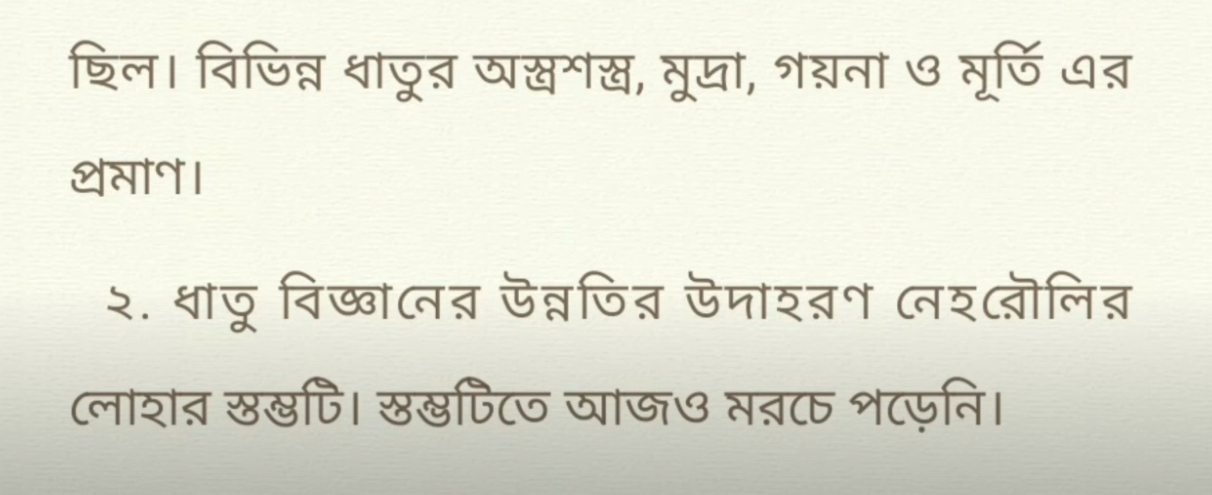 ছিল। বিভিন্ন ধাতুর অস্ত্রশস্ত্র, মুদ্রা, গয়না ও মূর্তি এর
প্রমাণ।
২. ধাতু বিজ্ঞানের উন্নতির উদাহরণ নেহরৌলির
লোহার স্তম্ভটি। স্তম্ভটিতে আজও মরচে পড়েনি।